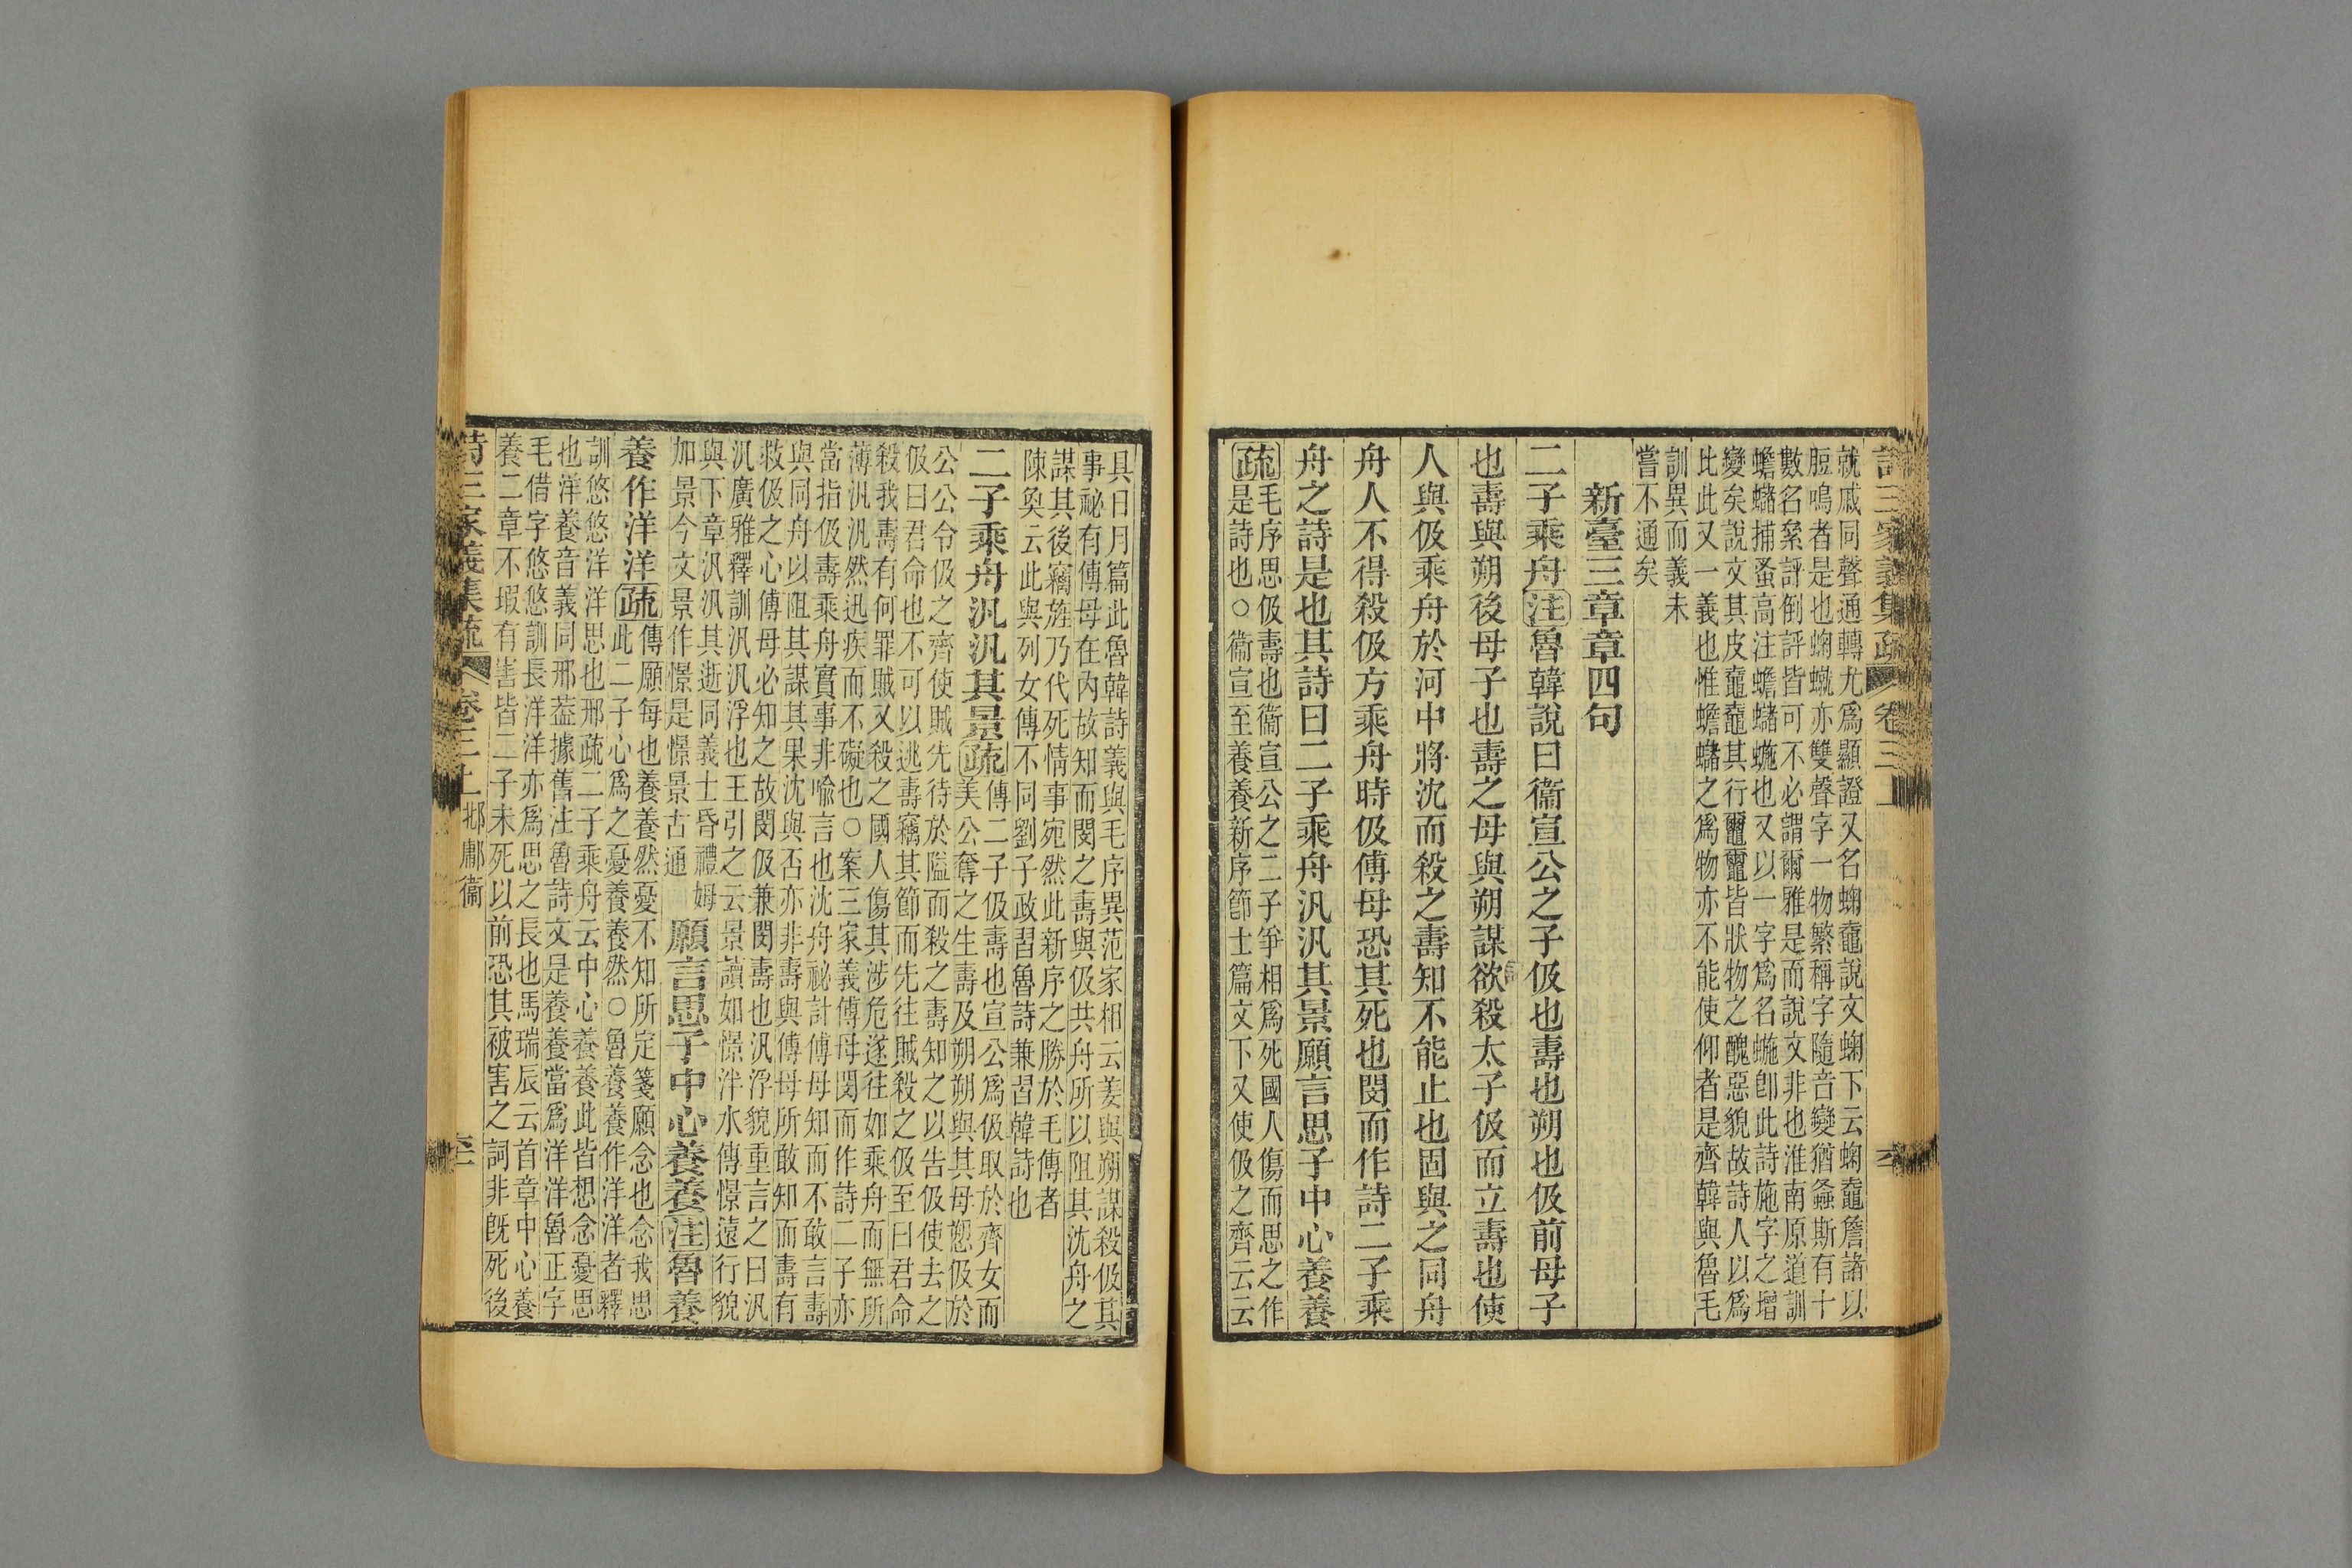 詩三家義集疏 卷三上
就戚同聲通轉尤爲顯證又名蝍䵷說文蝍下云蝍䵷詹諸以
脰鳴者是也蝍蠅亦雙聲字一物繁稱字隨音變猶螽斯有十
數名案評倒評皆可不必謂爾雅是而說文非也淮南原道訓
蟾蠩捕蚤高注蟾蠩蝂也又以一字爲名蝂卽此詩施字之增
變矣說文其皮鼀鼀其行𪓰𪓰皆狀物之醜惡貌故詩人以爲
比此又一義也惟蟾蠩之爲物亦不能使仰者是齊韓與魯毛
訓異而義未
嘗不通矣
新臺三章章四句
二子乘舟注魯韓說曰衞宣公之子伋也壽也朔也伋前母子
也壽與朔後母子也壽之母與朔謀欲殺太子伋而立壽也使
人與伋乘舟於河中將沈而殺之壽知不能止也固與之同舟
舟人不得殺伋方乘舟時伋傅母恐其死也閔而作詩二子乘
舟之詩是也其詩曰二子乘舟汎汎其景願言思子中心養養
疏毛序思伋壽也衞宣公之二子爭相爲死國人傷而思之作
是詩也○衞宣至養養新序節士篇文下又使伋之齊云云
具日月篇此魯韓詩義與毛序異范家相云姜與朔謀殺伋其
事祕有傅母在內故知而閔之壽與伋共舟所以阻其沈舟之
謀其後竊旌乃代死情事宛然此新序之勝於毛傳者
陳奐云此與列女傳不同劉子政習魯詩兼習韓詩也
二子乘舟汎汎其景疏傳二子伋壽也宣公爲伋取於齊女而
美公奪之生壽及朔朔與其母愬伋於
公公令伋之齊使賊先待於隘而殺之壽知之以告伋使去之
伋曰君命也不可以逃壽竊其節而先往賊殺之伋至曰君命
殺我壽有何罪賊又殺之國人傷其涉危遂往如乘舟而無所
薄汎汎然迅疾而不礙也○案三家義傅母閔而作詩二子亦
當指伋壽乘舟實事非喻言也沈舟祕計傅母知而不敢言壽
與同舟以阻其謀其果沈與否亦非壽與傅母所敢知而壽有
救伋之心傅母必知之故閔伋兼閔壽也汎浮貌重言之曰汎
汎廣雅釋訓汎汎浮也王引之云景讀如憬泮水傳憬遠行貌
與下章汎汎其逝同義士昏禮姆
加景今文景作憬是憬景古通 願言思子中心養養注魯養
養作洋洋疏傳願每也養養然憂不知所定箋願念也念我思
此二子心爲之憂養養然○魯養養作洋洋者釋
訓悠悠洋洋思也邢疏二子乘舟云中心養養此皆想念憂思
也洋養音義同邢葢據舊注魯詩文是養養當爲洋洋魯正字
毛借字悠悠訓長洋洋亦爲思之長也馬瑞辰云首章中心養
養二章不瑕有害皆二子未死以前恐其被害之詞非旣死後
詩三家義集疏 卷三上邶鄘衞